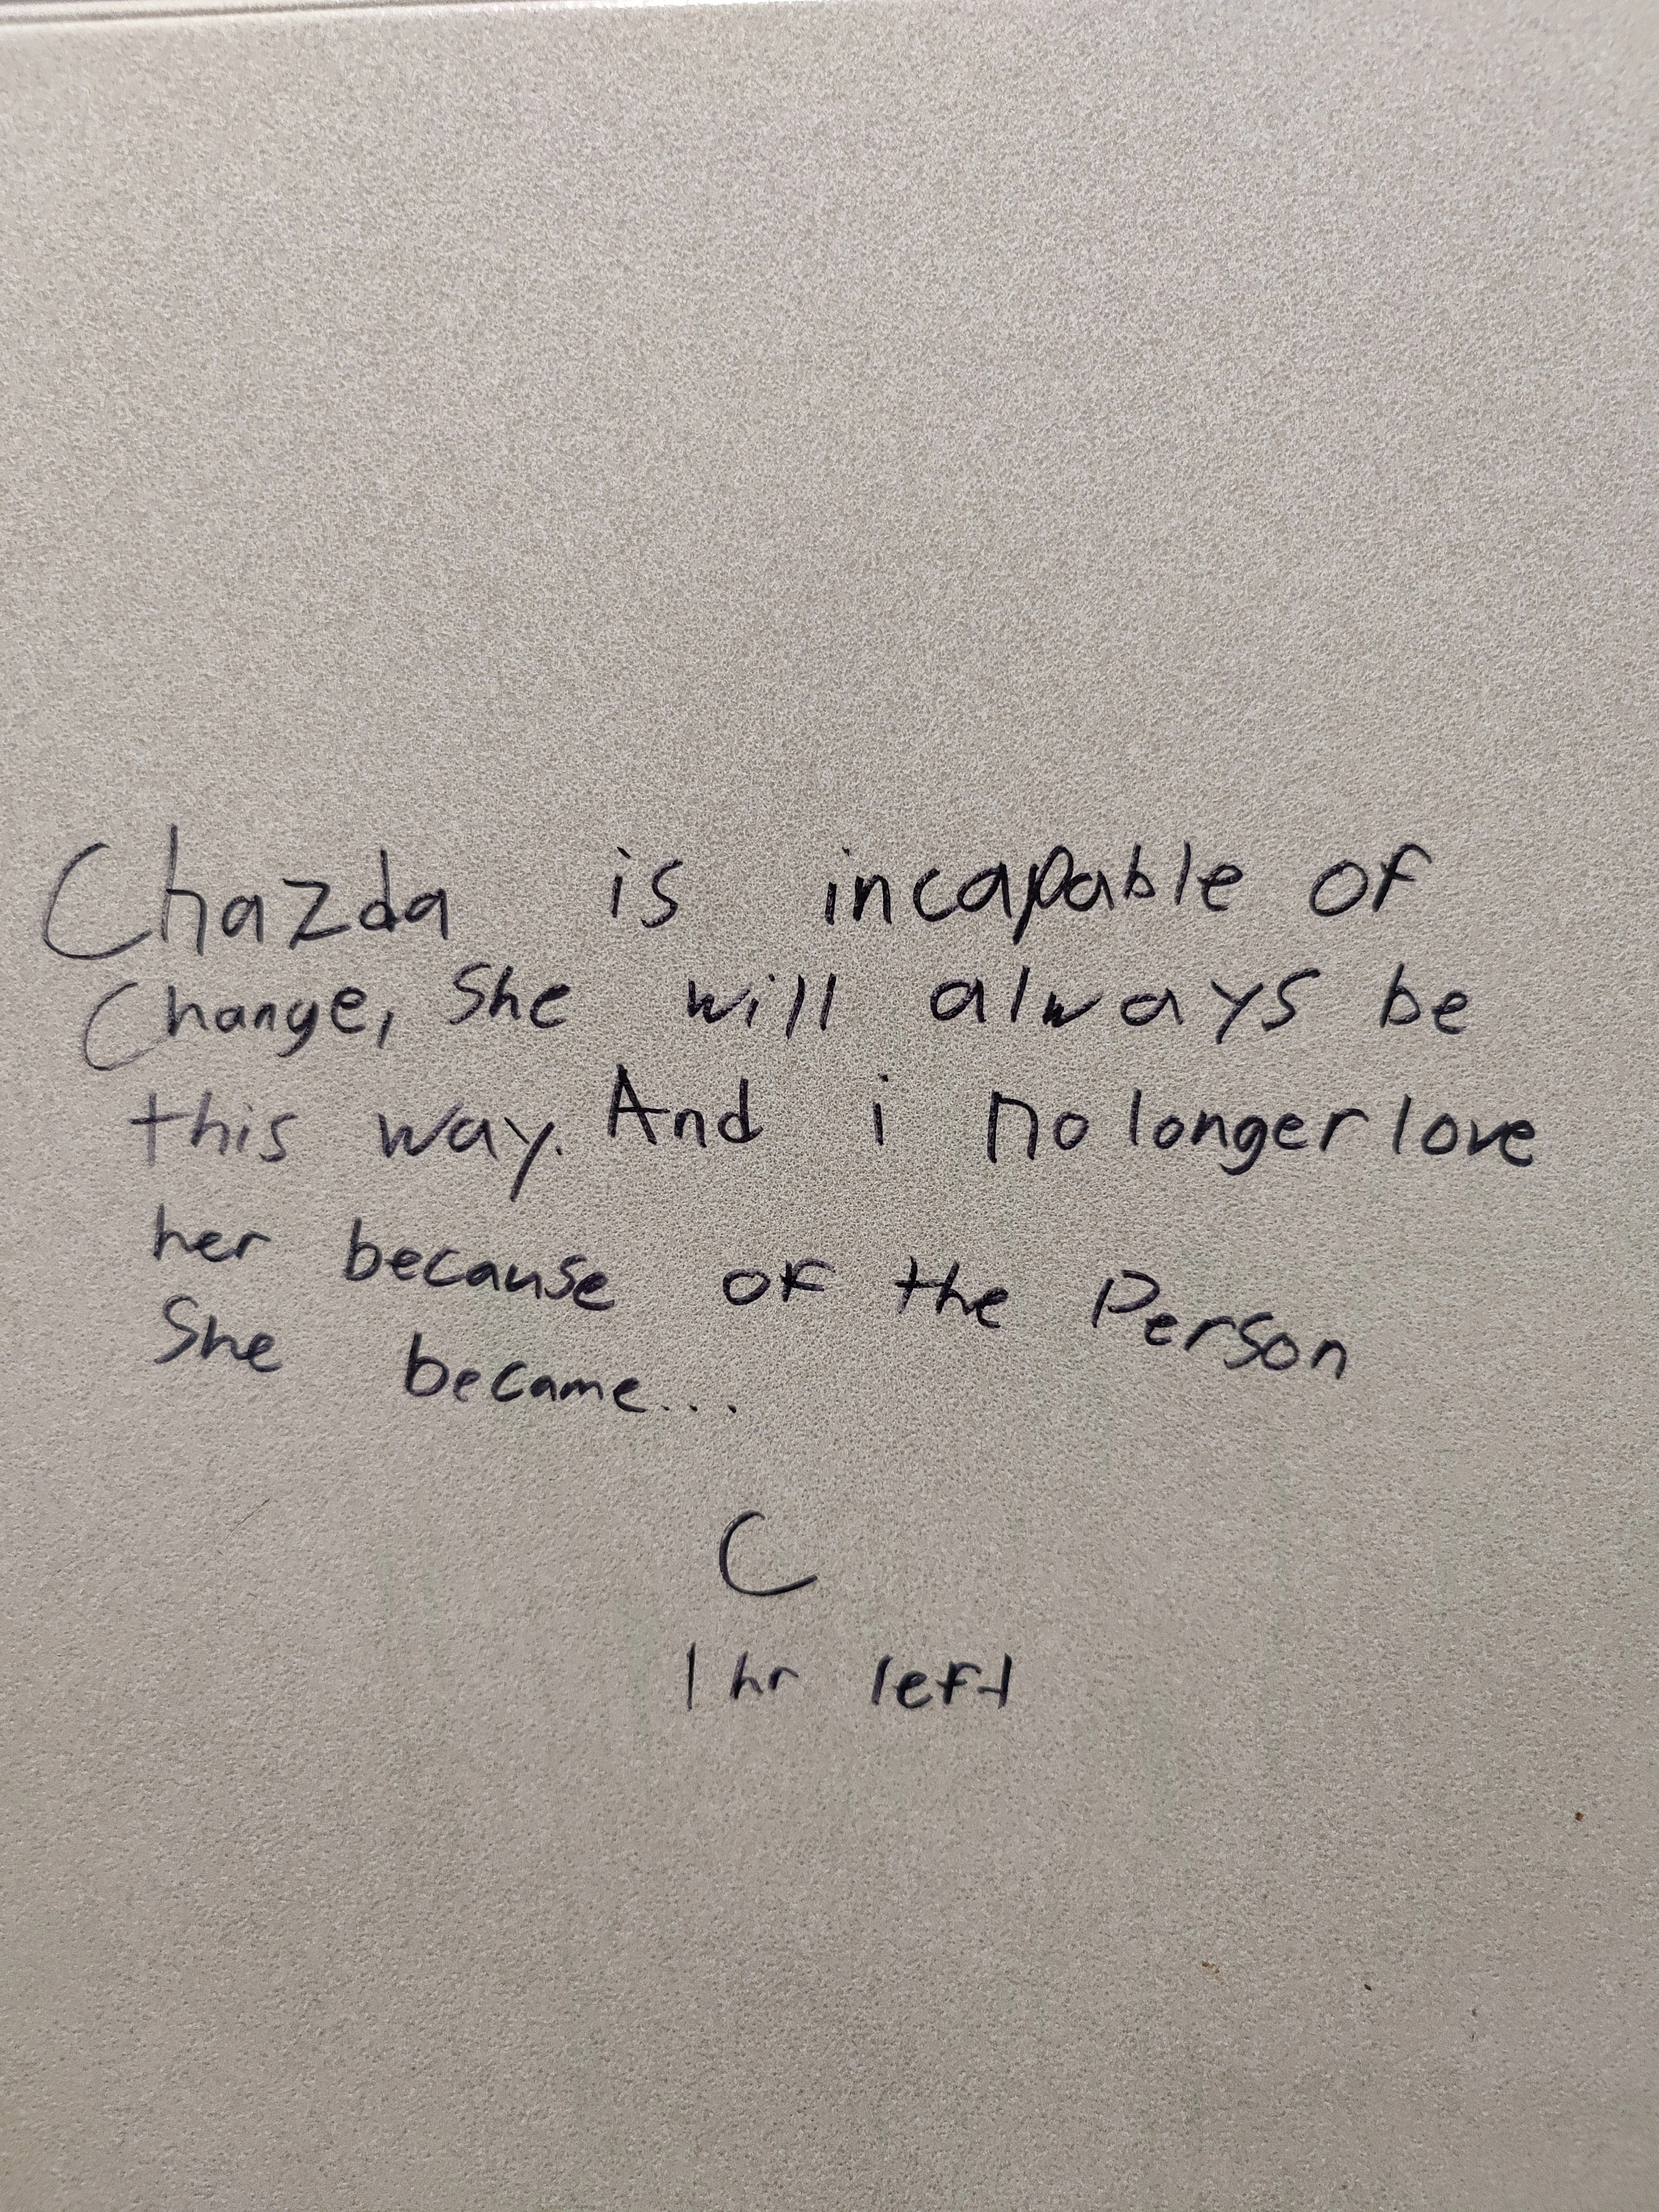 Chazda is incapable of
Change, She will always be
this way. And i no longer love
her because of the Person
She became...
C
1 hr left